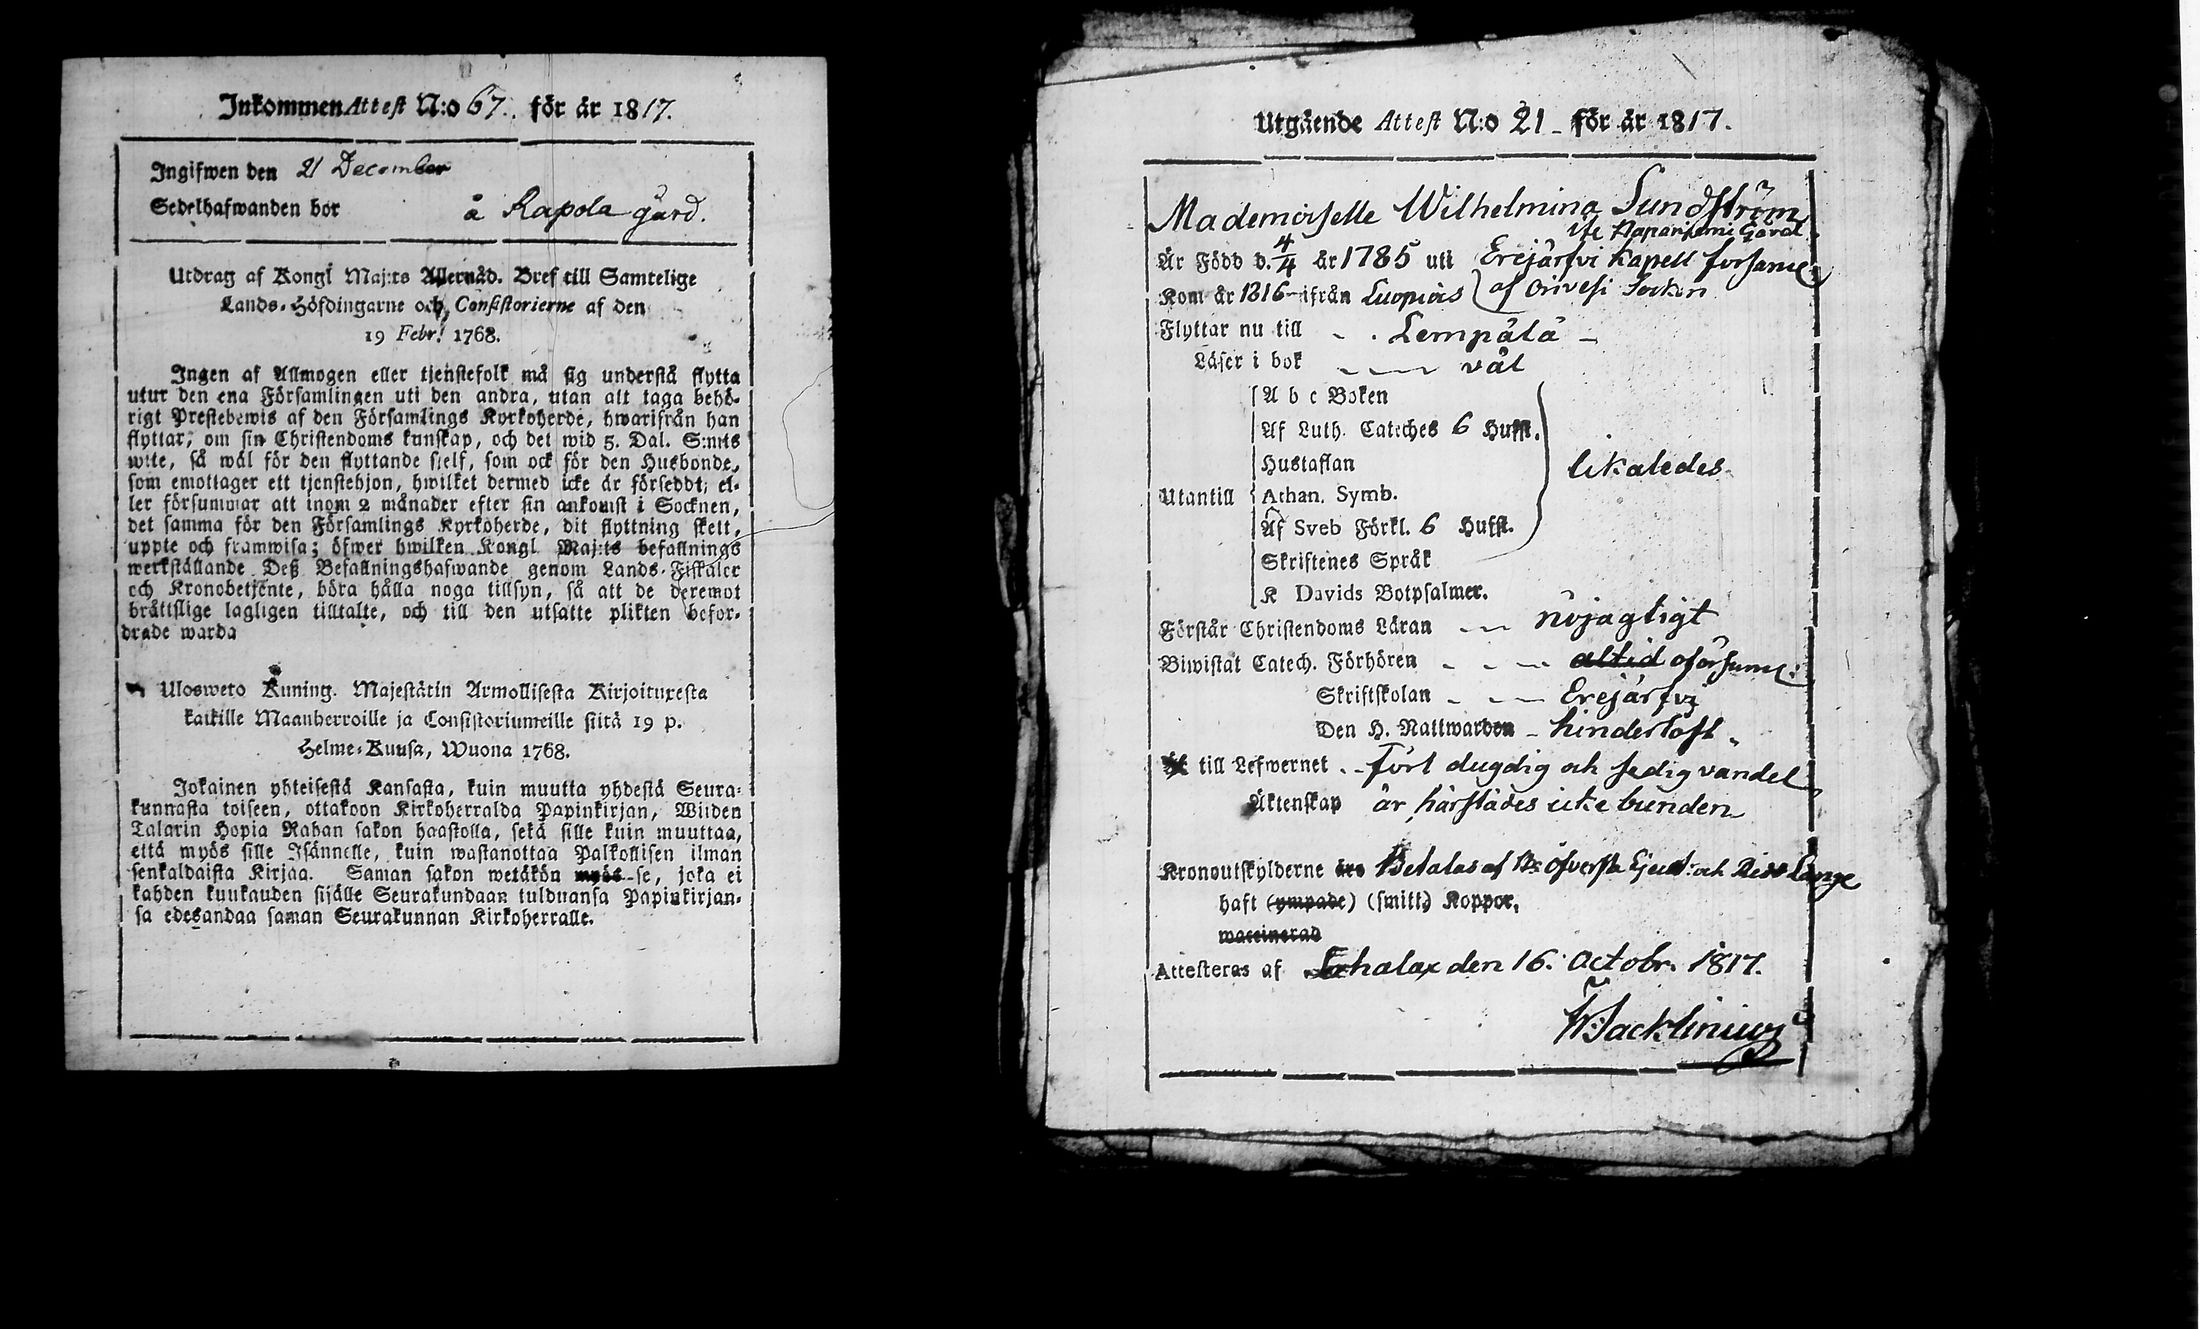 Inkommen Attest N:o 67. för år 1817.
Ingifwen den 21 December
Sedelhafwanden bor å Rapola gård.
Utdrag af Kongl Maj:ts Allernåd. Bref till Samtelige
Lands-Höfdingarne och Consistorierne af den
19 Febr. 1768.
Ingen af Allmogen eller tjenstefolk må sig understå flytta
utur den ena Församlingen uti den andra, utan att taga behö-
rigt Prestebewis af den Församlings Kyrkoherde, hwarifrån han
flyttar, om sin Christendoms kunskap, och det wid 5. Dal. S:mts
wite, så wäl för den flyttande sielf, som ock för den Husbonde,
som emottager ett tjenstehjon, hwilket dermed icke är försedt; el-
ler försummar att inom 2 månader efter sin ankomst i Socknen,
det samma för den Församlings Kyrkoherde, dit flyttning skett,
uppte och framwisa; öfwer hwilken Kongl Maj:ts befallnings
werkställande Deß Befallningshafwande genom Lands-Fiskaler
och Kronobetjente, böra hålla noga tillsyn, så att de deremot
bråttslige lagligen tilltalte, och till den utsatte plikten befor-
drade warda
Ulosweto Kuning. Majestätin Armollisesta Kirjoituxesta
kaikille Maanherroille ja Consistoriumeille siitä 19 p.
Helme-Kuusa, Wuona 1768.
Jokainen yhteisestä Kansasta, kuin muutta yhdestä Seura-
kunnasta toiseen, ottakoon Kirkoherralda Papinkirjan, Wiiden
Talarin Hopia Rahan sakon haastolla, sekä sille kuin muuttaa,
että myös sille Isännelle, kuin wastanottaa Palkollisen ilman
senkaldaista Kirjaa. Saman sakon wetäkön myös se, joka ei
kahden kuukauden sisälle Seurakundaan tulduansa Papinkirjan-
sa edesandaa saman Seurakunnan Kirkoherralle.
Utgående Attest N:o 21 för år 1817.
Mademoiselle Wilhelmina Sundström
Är Född d. 4/4 år 1785 uti Erejärfvi Kapell
Kom år 1816 ifrån Luopiois af Orivesi Socken
Flyttar nu till Lempälä
Läser i bok väl
A b c Boken
Af Luth. Cateches 6 Hufst.
Hustaflan
likaledes
Utantill Athan. Symb.
Af Sveb Förkl. 6 Hufst.
Skriftenes Språk
K Davids Botpsalmer.
Förstår Christendoms Läran nöjagtigt
Biwistat Catech. Förhören altid oförsuml:
Skriftskolan Erejärfvi
Den H. Nattwarden hinderlöst
till Lefwernet fört dygdig och sedig vandel
Äktenskap är härstädes icke bunden
Kronoutskylderne äro Betalas af
haft (ympade) (smitt) Koppor,
waccinerad
Attesteras af Sahalax den 16. Octobr. 1817.